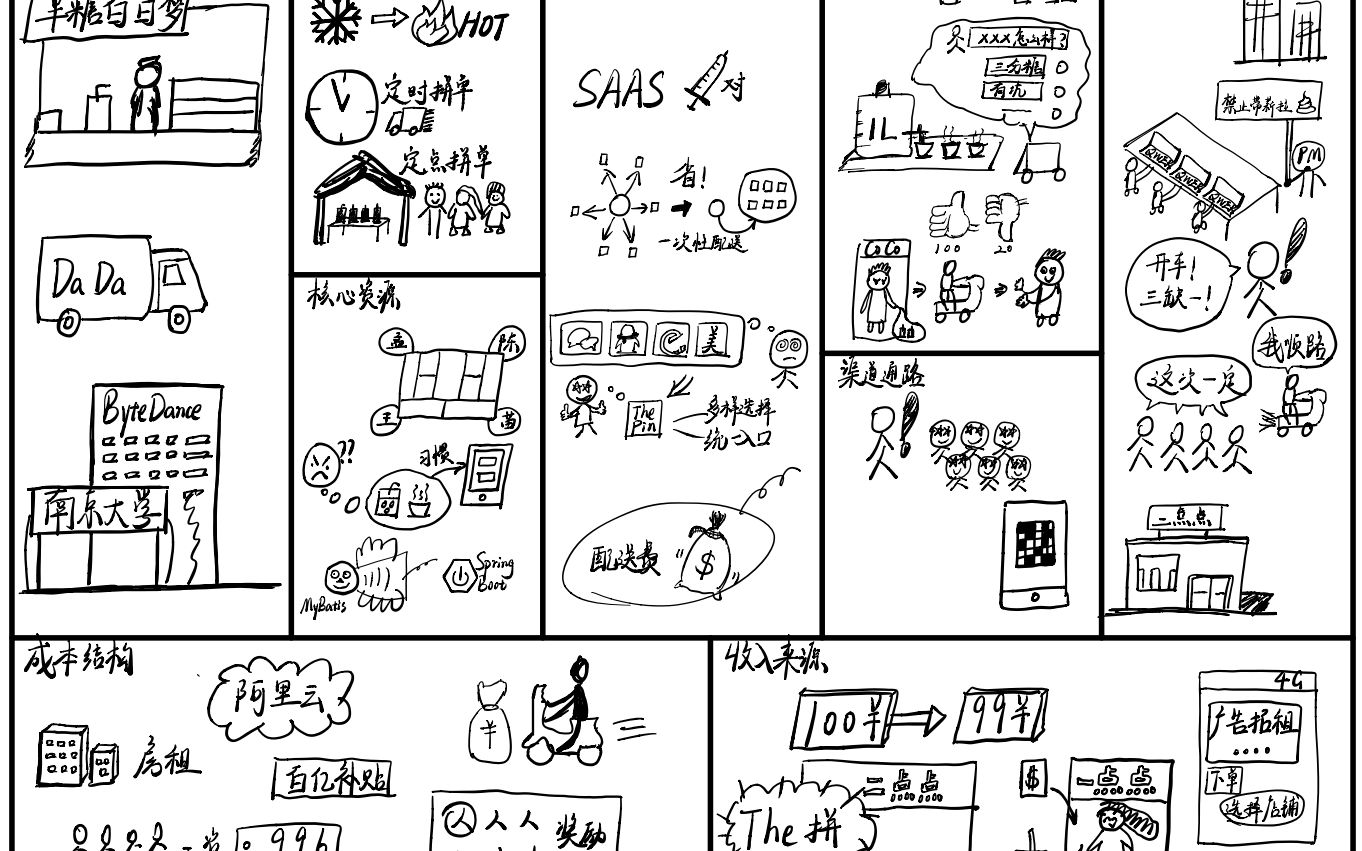 半糖白日梦
DaDa
ByteDance
南京大学
HOT
定时拼单
定点拼单
核心资源
孟
陈
王
苗
??
习惯
MyBatis
Spring
Boot
SAAS
对
省!
一次性配送
美
The
Pin
多样选择
统一入口
配送费
$
xxx怎么样?
三分糖
有坑
1L
100
20
CoCo
渠道通路
禁止带薪拉
PM
QWER
QWER
QWER
开车!
三缺一!
我顺路
这次一定
一点点
成本结构
阿里云
房租
百亿补贴
羊
996
人人人
奖励
收入来源
100羊
99羊
The拼
一点点
$
一点点
4G
广告招租
....
下单
选择店铺